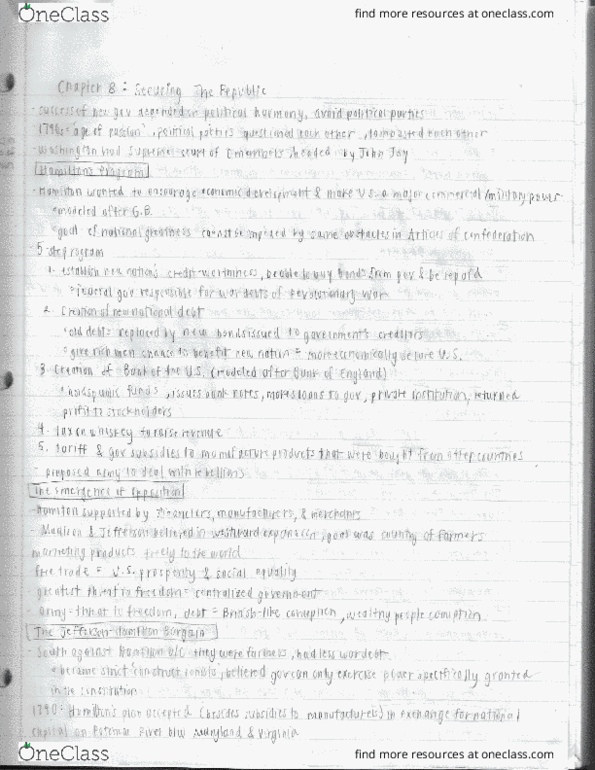 OneClass
find more resources at oneclass.com
Chapter 8: Securing The Republic
- success of new gov dependent on political harmony, avoid political parties
- 1790s: "age of passion", political parties questioned each other,
- Washington had supreme court of 6 members headed by John Jay
Hamilton's Program
- Hamilton wanted to encourage economic development & make U.S. a major commercial/military power
modeled after G.B.
goal of national greatness cannot be by same obstacles in Articles of Confederation
5 step program
1. establish new nation's credit-worthiness, people to buy bonds from gov & be repaid
federal gov responsible for war debts of revolutionary war
2. Creation of new national debt
old debts replaced by new bonds issued to government's creditors
give rich men chance to benefit new nation = more economically secure U.S.
3. Creation of Bank of the U.S. (modeled after Bank of England)
holds public funds, issues bank notes, makes loans to gov, private institution, returned
profit to stockholders
4. tax on whiskey to raise revenue
5. tariff & gov subsidies to manufacture products that were bought from other countries
- proposed army to deal with rebellions
The Emergence of Opposition
- Hamilton supported by financiers, manufacturers, & merchants
- Madison & Jefferson believed in westward expansion, goal was country of farmers
marketing products freely to the world
free trade = U.S. prosperity & social equality
greatest threat to freedom = centralized government
- army = threat to freedom, debt = British-like corruption, wealthy people corruption
The Jefferson-Hamilton Bargain
- South against Hamilton b/c they were farmers, had less war debt
became strict constructionists, believed gov can only exercise power specifically granted
in the constitution
1790: Hamilton's plan accepted (besides subsidies to manufacturers) in exchange for national
capital on Potomac River b/w Maryland & Virginia
OneClass
find more resources at oneclass.com